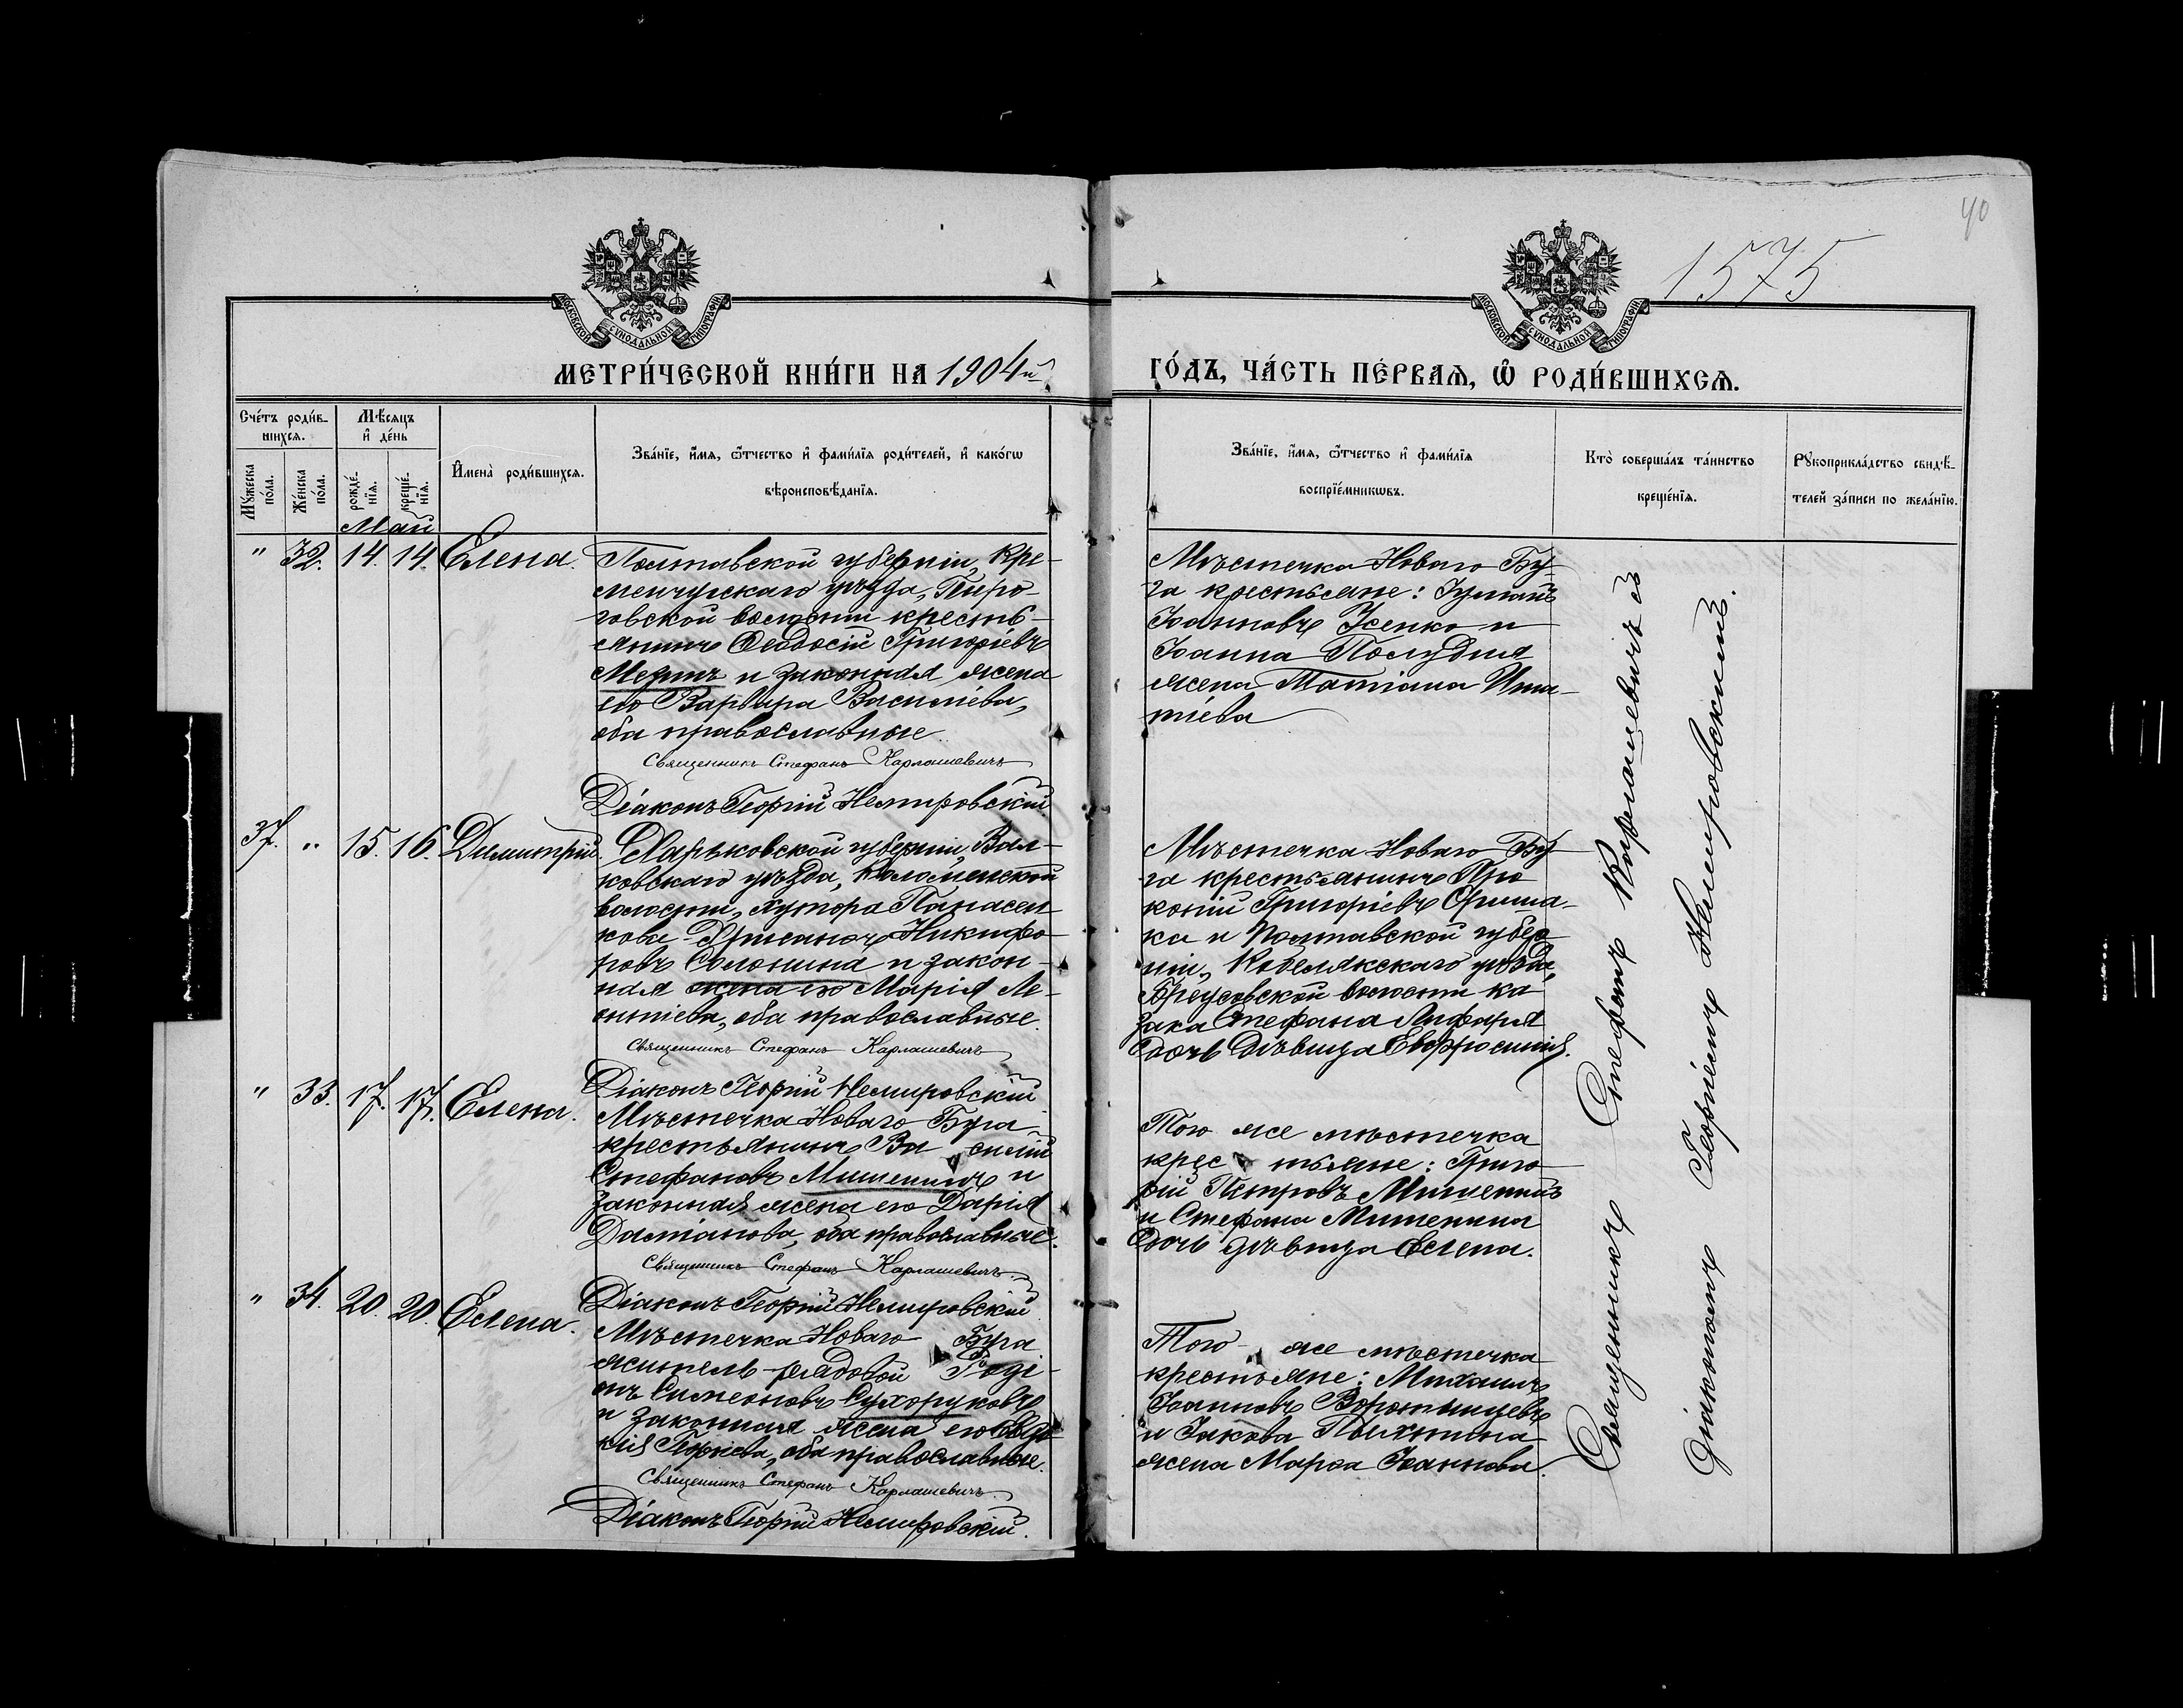 40
1575
МОСКОВСКОЙ СѴНОДАЛЬНОЙ ТИПОГРАФІИ
МОСКОВСКОЙ СѴНОДАЛЬНОЙ ТИПОГРАФІИ
МЕТРИ́ЧЕСКОЙ КНИ́ГИ НА 1904й
ГО́ДЪ, ЧА́СТЬ ПЕ́РВАѦ, Ѡ РОДИ́ВШИХСѦ.
Сче́тъ роди́в-
шихсѧ.
Мꙋ́жеска по́ла.
Же́нска по́ла.
Мѣ́сѧцъ
и҆ де́нь
рожде́-
нїѧ.
креще́-
нїѧ.
И҆мена̀ роди́вшихсѧ.
Зва́нїе, и҆́мѧ, ѻ҆́тчество и҆ фами́лїѧ роди́телей, и҆ како́гѡ
вѣроисповѣ́данїѧ.
Зва́нїе, и҆́мѧ, ѻ҆́тчество и҆ фами́лїѧ
воспрїе́мникѡвъ.
Кто̀ соверша́лъ та́инство
креще́нїѧ.
Рꙋкоприкла́дство свидѣ́-
телей за́писи по жела́нїю.
Май
" 32. 14. 14. Елена.
Полтавской губерніи, Кре-
менчугскаго уѣзда, Пиро-
говской волости кресть-
янинъ Ѳеодосій Григоріевъ
и законная жена
его Варвара Василіева,
оба православные
Священникъ Стефанъ Карлашевичъ
Діаконъ Георгій Немировскій
Мѣстечка Новаго Бу-
га крестьяне:
Іоанновъ Усенко и
Іоанна Полудня
жена Татіана Игна-
тіева
37. " 15. 16. Димитрій.
Харьковской губерніи, Вал-
ковскаго уѣзда, Коломенской
волости, хутора Панасен-
кова Хрисанфъ Никифо-
ровъ Солонина и закон-
ная жена его Марія Ле-
онтіева, оба православные.
Священникъ Стефанъ Карлашевичъ
Діаконъ Георгій Немировскій
Мѣстечка Новаго Бу-
га крестьянинъ Про
копій Григоріевъ
ка и Полтавской губер
ніи, Кобелякскаго уѣзда,
Бреусовской волости ка
зака Стефана Лифаря
дочь дѣвица Евфросинія.
" 33. 17. 17. Елена.
Мѣстечка Новаго Буга
крестьянинъ Ва силій
Стефановъ Мишенинъ и
законная жена его Дарія
Даміанова, оба православные.
Священникъ Стефанъ Карлашевичъ
Діаконъ Георгій Немировскій
Того же мѣстечка
крес тьяне: Григо
рій Петровъ Мишенинъ
и Стефана Мишенина
дочь дѣвица Елена.
" 34. 20. 20. Елена.
Мѣстечка Новаго Буга
житель рядовой Родi-
онъ Симеоновъ Сухоруковъ
и законная жена его Евдо
кія Георгіева, оба православные.
Священникъ Стефанъ Карлашевичъ
Діаконъ Георгій Немировскій.
Того же мѣстечка
крестьяне: Михаилъ
Іоанновъ Воротынцевъ
и Іакова Полхнина
жена Марѳа Іоаннова.
Священникъ Стефанъ Карлашевичъ съ
діакономъ Георгіемъ Немировскимъ.